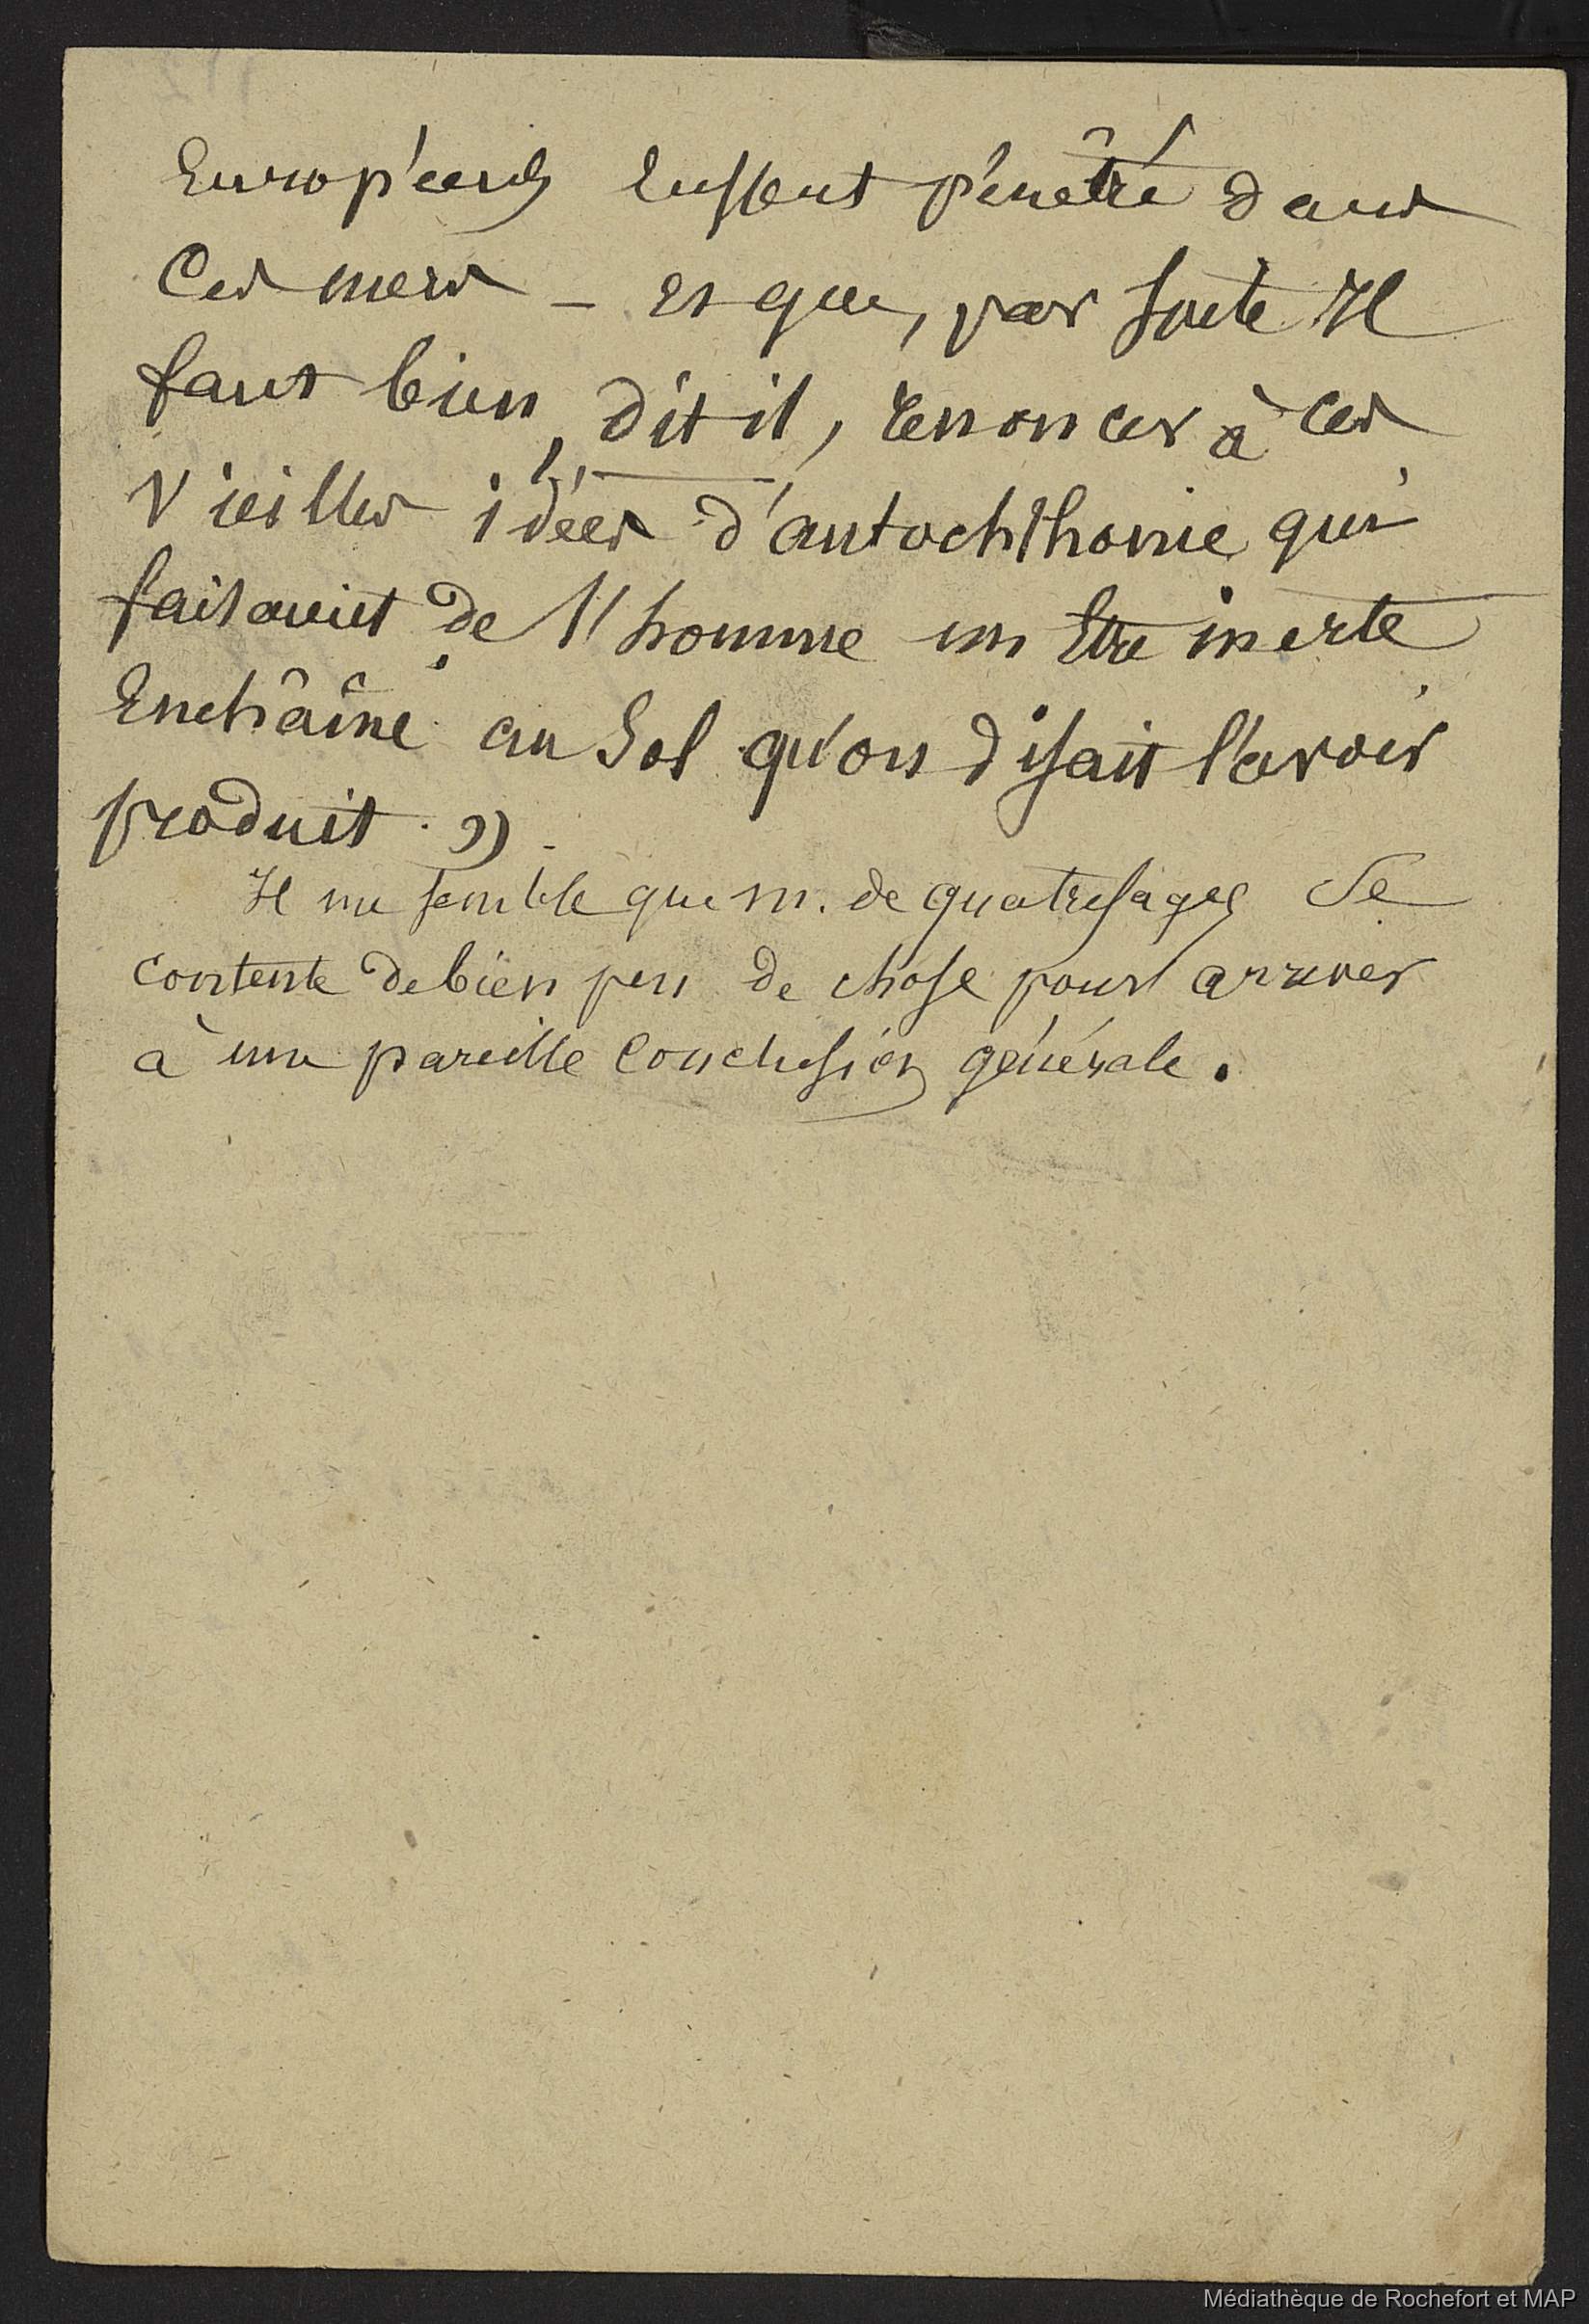 Européens eussent pénêtré dans
ces mers – et que, par suite Il
faut bien, dit il, renoncer à ces
vieilles idées d'autochthonie qui
faisaient de l'homme un être inerte
enchâîné au sol qu'on disait l'avoir
produit. »
Il me semble que M. de quatrefages se
contente de bien peu de chose pour arriver
à une pareille conclusion générale.
Médiathèque de Rochefort et MAP